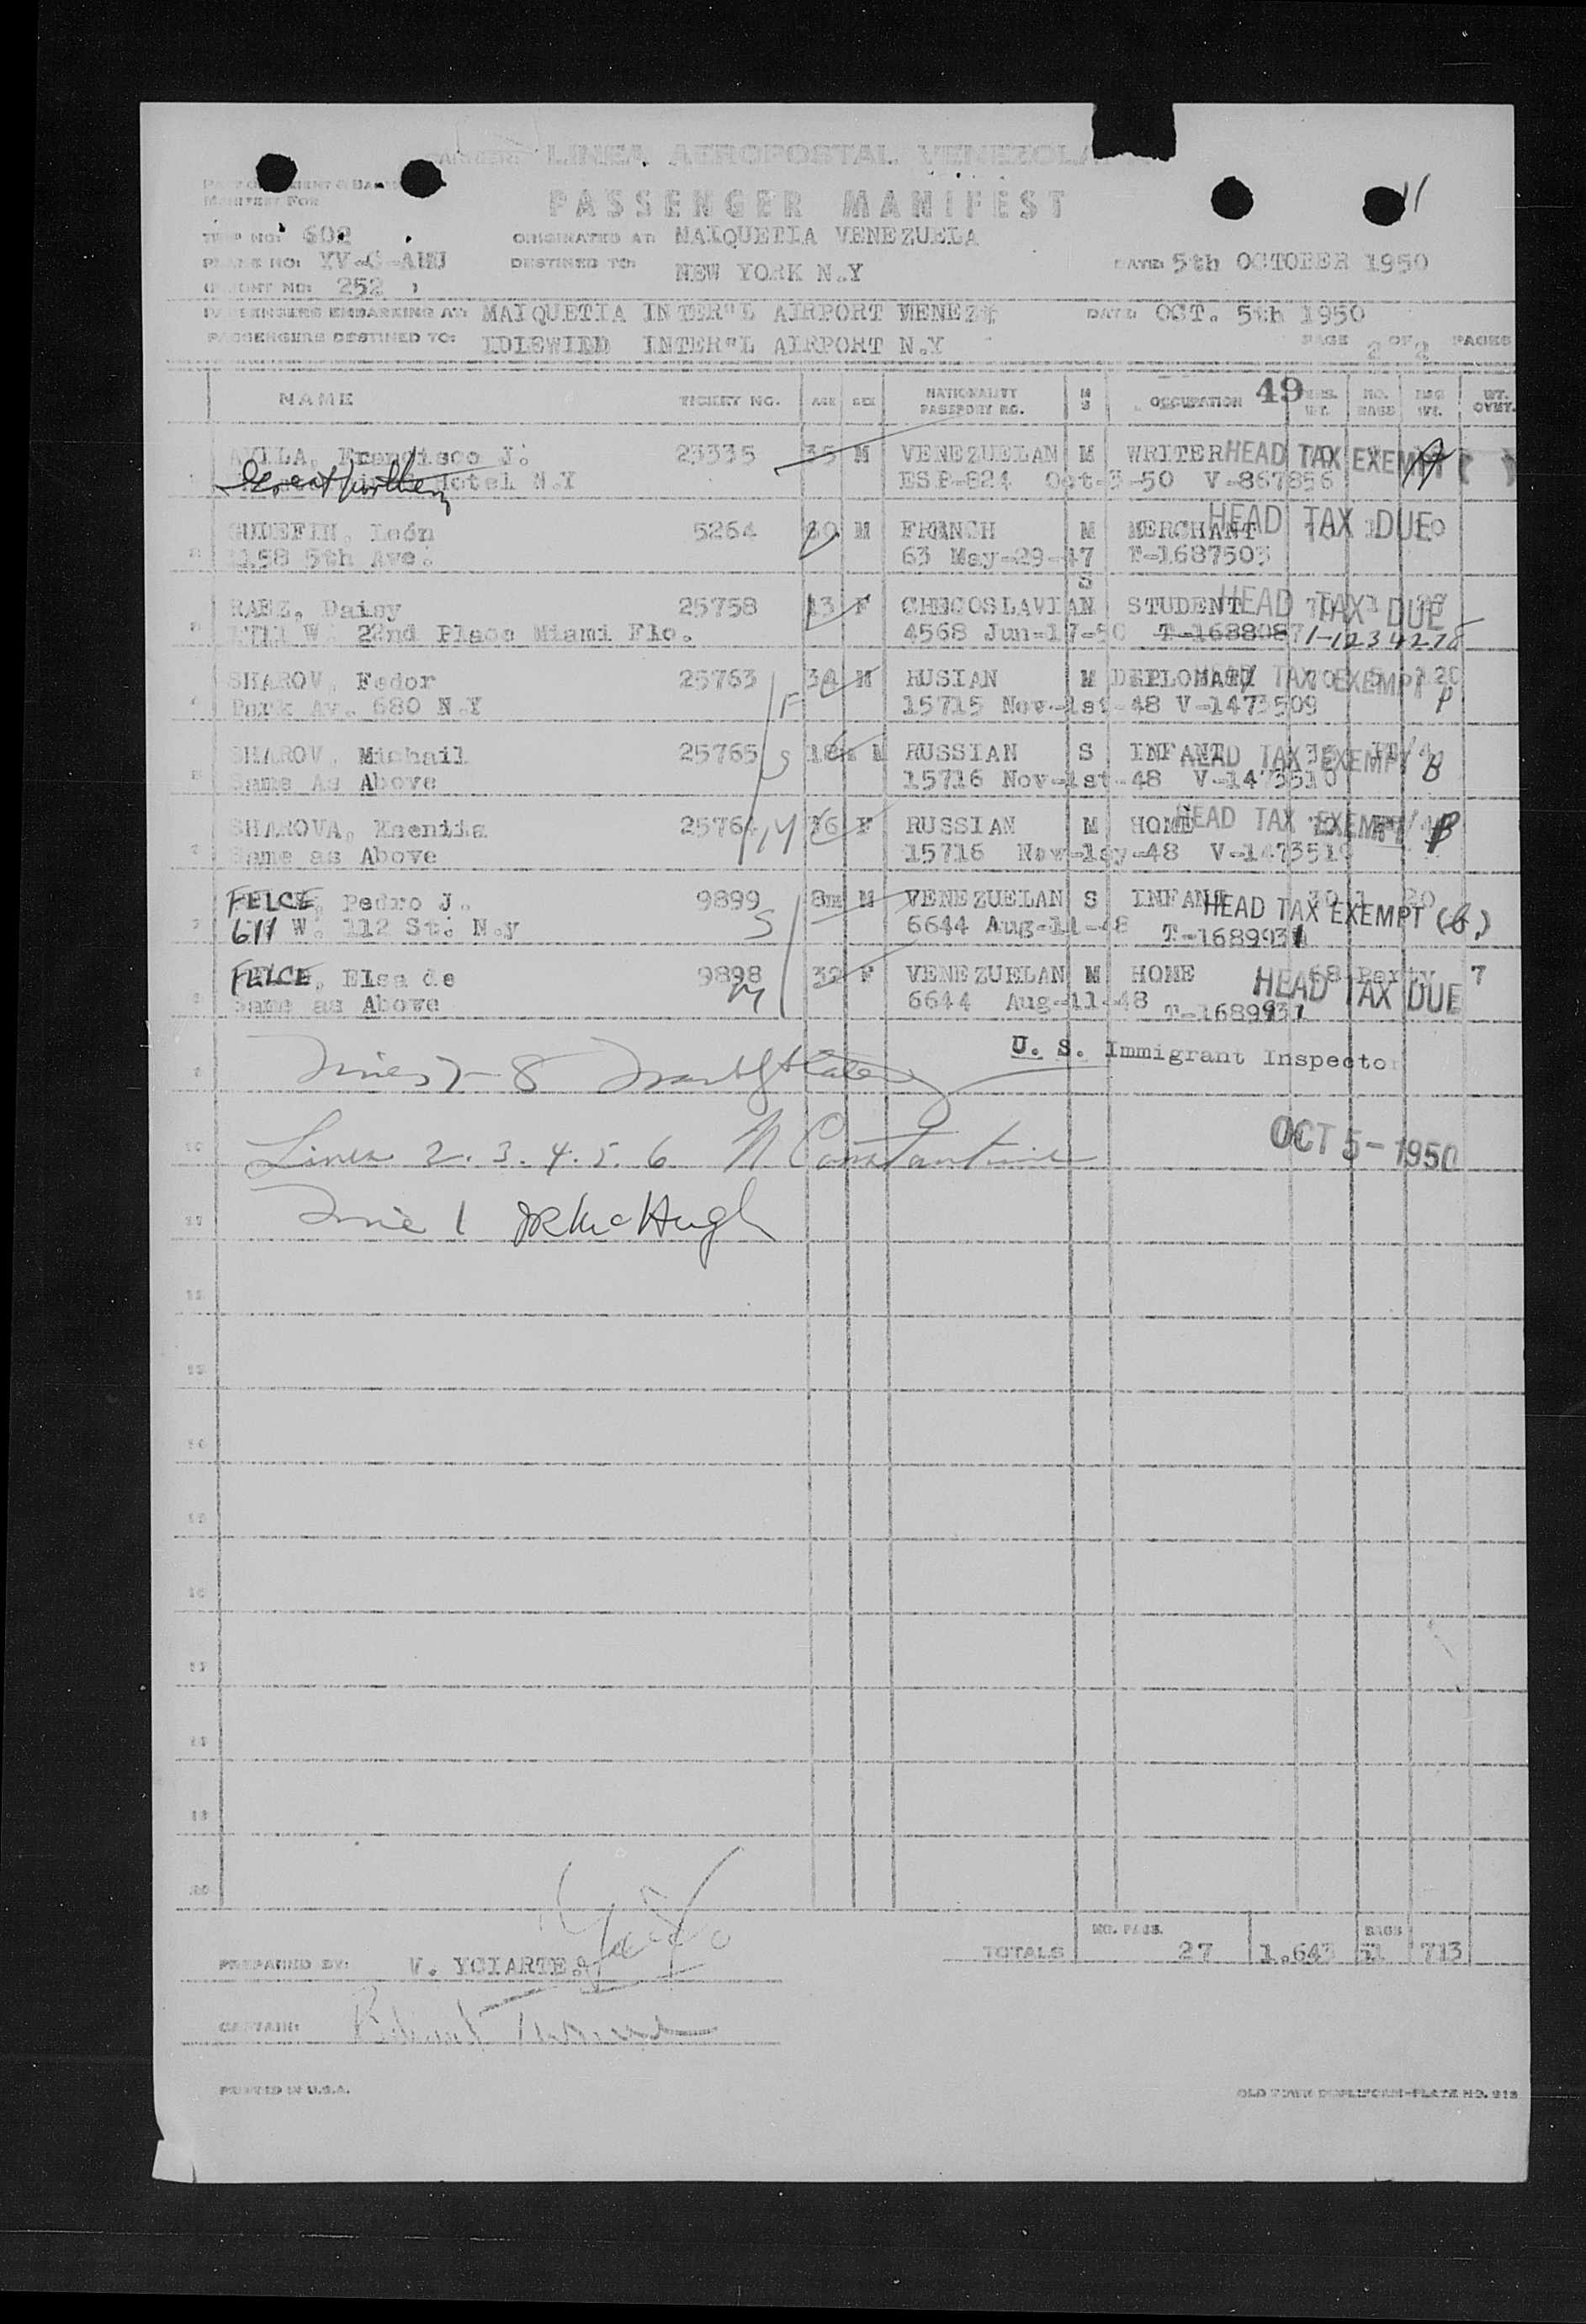 LINEA AEROPOSTAL VENEZOLA
PASSENGER MANIFEST
11
MANIFEST FOR
TRIP NO: 602
ORIGINATED AT: MAIQUETIA VENEZUELA
PLANE NO: YV-C-
DESTINED TO: NEW YORK N.Y
DATE: 5th OCTOBER 1950
(FLIGHT NO: 252 )
PASSENGERS EMBARKING AT: MAIQUETIA INTER"L AIRPORT VENEZ
DATE OCT. 5th 1950
PASSENGERS DESTINED TO: IDLEWILD INTER"L AIRPORT N.Y
PAGE 2 OF 2 PAGES
NAME TICKET NO. AGE SEX NATIONALITY PASSPORT NO. M S OCCUPATION 49 PAS. WT. NO. BAGS BAG WT. WT. OVWT.
1 AVILA, Francisco J. 25335 35 M VENEZUELAN M WRITER HEAD TAX EXEMPT
Hotel N.Y ESP-824 Oct-3-50 V-867856
2 GUDEFIN, León 5264 60 M FRENCH M MERCHANT HEAD TAX DUE
1158 5th Ave. 63 May-29-47 T-1687503
3 RAEZ, Daisy 25758 13 F CHECOSLAVIAN S STUDENT HEAD TAX DUE
W. 22nd Place Miami Flo. 4568 Jun-17-50 T-1688087 1-1234278
4 SHAROV, Fedor 25763 34 M RUSIAN M DIPLOMAT HEAD TAX EXEMPT 120
Park Av. 680 N.Y F 15715 Nov-1st-48 V-1473509
5 SHAROV, Michail 25765 18 M RUSSIAN S INFANT HEAD TAX EXEMPT
Same As Above S 15716 Nov-1st-48 V-1473510 B
6 SHAROVA, Kseniia 25764 M 36 F RUSSIAN M HOME HEAD TAX EXEMPT
Same as Above 15716 Nov-1sy-48 V-147351
7 FELCE, Pedro J. 9899 8m M VENEZUELAN S INFANT 30 1 20 HEAD TAX EXEMPT (B.)
611 W. 112 St. N.y S 6644 Aug-11-48 T-1689931
8 FELCE, Elsa de 9898 32 F VENEZUELAN M HOME 68 Party 7
Same as Above M 6644 Aug-11-48 T-1689931 HEAD TAX DUE
9 U. S. Immigrant Inspector
10 Lines 2. 3. 4. 5. 6 N Constantine
OCT 5-1950
11 Line 1 JR McHugh
12
13
14
15
16
17
18
19
20
PREPARED BY: V. YCIARTE
TOTALS NO. PASS. 27 1.643 BAGS 51 713
CAPTAIN:
PRINTED IN U.S.A.
OLD TOWN DUPLIFORM-PLATE NO.